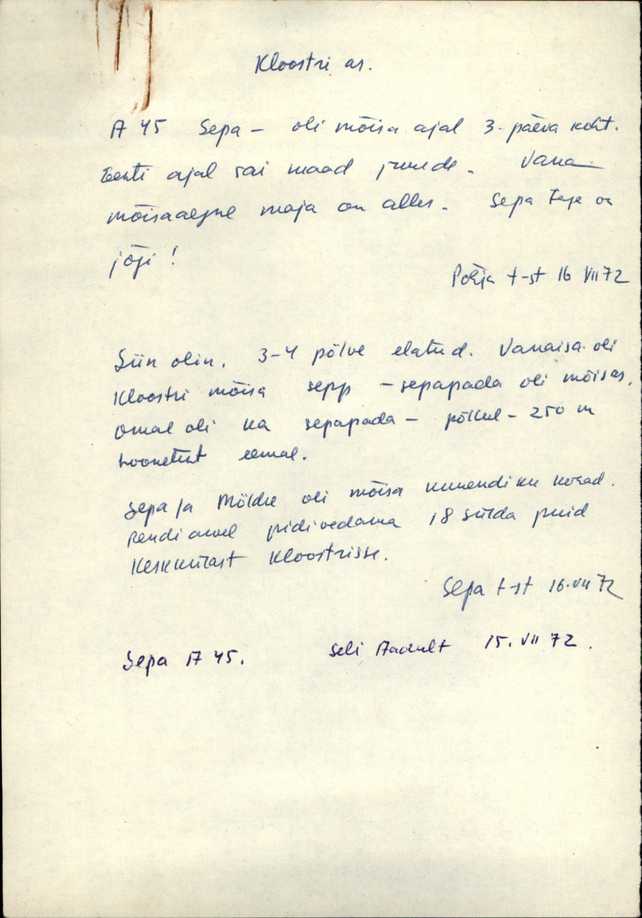 Kloostri as.
A 45 Sepa - oli mõisa ajal 3. päeva koht.
Eesti ajal sai maad juurde. Vana
mõisaaegne maja on alles. Sepa on
jõgi!
Põhja t-st 16 VII 72
Siin olin. 3-4 põlve elatud. Vanaisa oli
Kloostri mõisa sepp - sepapada oli mõisas.
Omal oli ka sepapada - põllul - 250 m
hoonetest eemal.
Sepa ja Möldre oli mõisa kohad.
Rendi pidi vedama 18 sülda puid
Keskkülast Kloostrisse.
Sepa t-st 16.VII 72
Sepa A 45. Seli 15. VII 72.